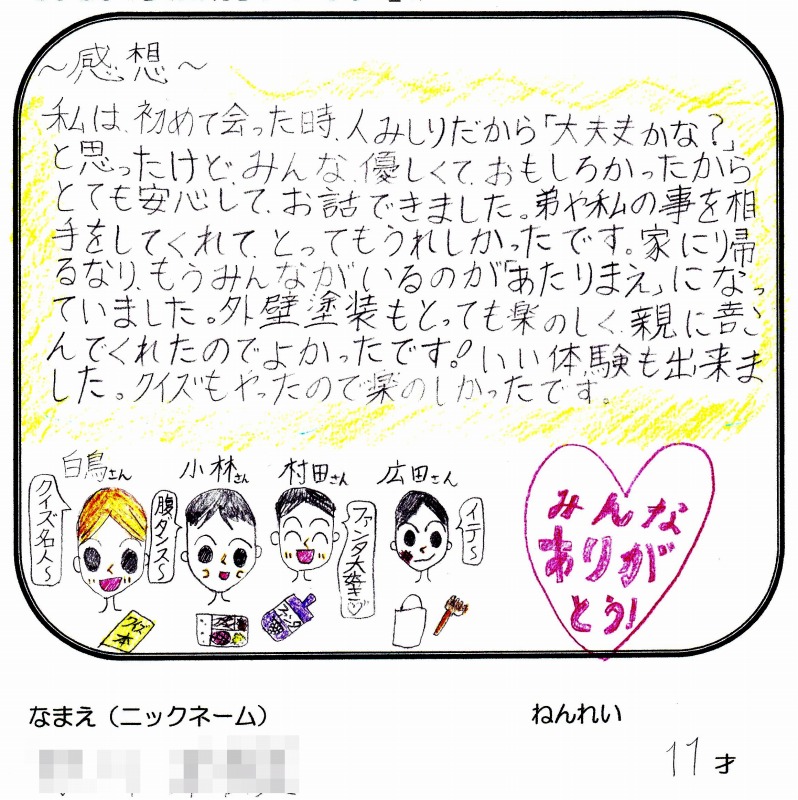 ～感想～
私は、初めて会った時、人みしりだから「大丈夫かな？」
と思ったけど、みんな、優しくて、おもしろかったから
とても安心して、お話できました。弟や私の事を相
手をしてくれて、とってもうれしかったです。家に帰
るなり、もうみんながいるのが「あたりまえ」になっ
ていました。外壁塗装もとっても楽のしく、親に喜こ
んでくれたのでよかったです！いい体験も出来ま
した。クイズもやったので楽のしかったです。
白鳥さん
小林さん
村田さん
広田さん
クイズ名人～
腹ダンス～
ファンタ大好き♡
イテ～
クイズ本
みんな
ありが
とう！
なまえ（ニックネーム）
ねんれい
11才